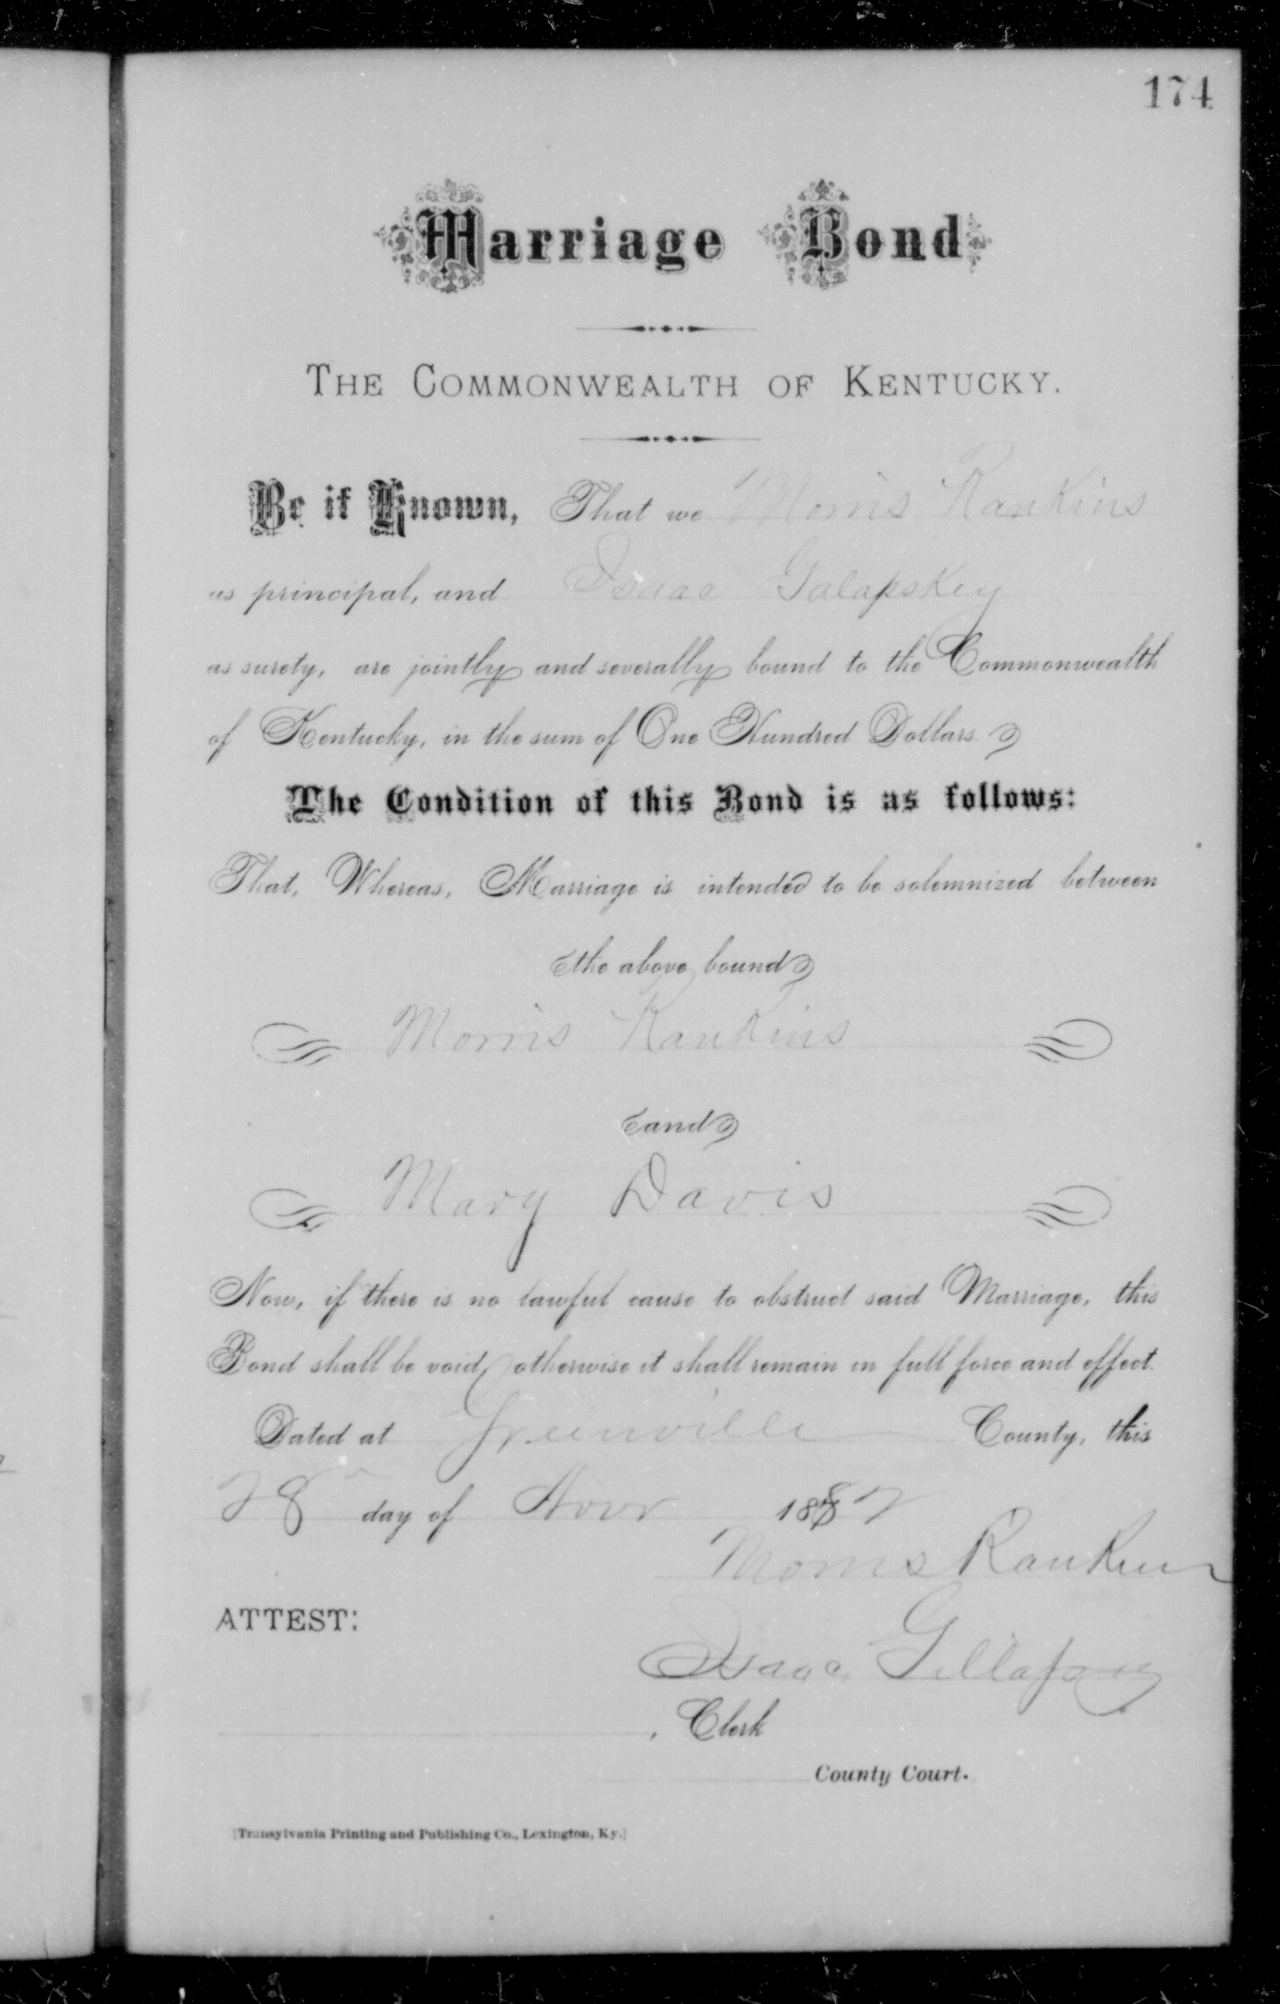 174
Marriage Bond
THE COMMONWEALTH OF KENTUCKY.
Be it Known, That we Morris Rankins
as principal, and Isaac Galapskey
as surety, are jointly and severally bound to the Commonwealth
of Kentucky, in the sum of One Hundred Dollars.
The Condition of this Bond is as follows:
That, Whereas, Marriage is intended to be solemnized between
the above bound
Morris Rankins
and
Mary Davis
Now, if there is no lawful cause to obstruct said Marriage, this
Bond shall be void, otherwise it shall remain in full force and effect.
Dated at Greenville County, this
28 day of Novr 1882
Morris Rankin
ATTEST:
Isaac Gillapsy
, Clerk
County Court.
[Transylvania Printing and Publishing Co., Lexington, Ky.]